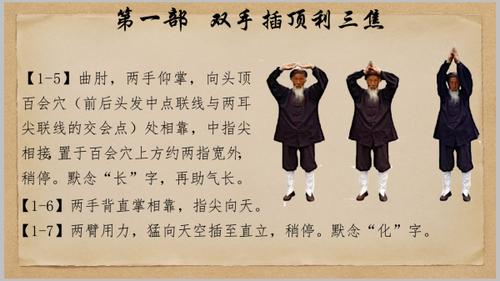 第一部 双手插顶利三焦
【1-5】曲肘，两手仰掌，向头顶
百会穴（前后头发中点联线与两耳
尖联线的交会点）处相靠，中指尖
相接,置于百会穴上方约两指宽外，
稍停。默念“长”字，再助气长。
【1-6】两手背直掌相靠，指尖向天。
【1-7】两臂用力，猛向天空插至直立，稍停。默念“化”字。